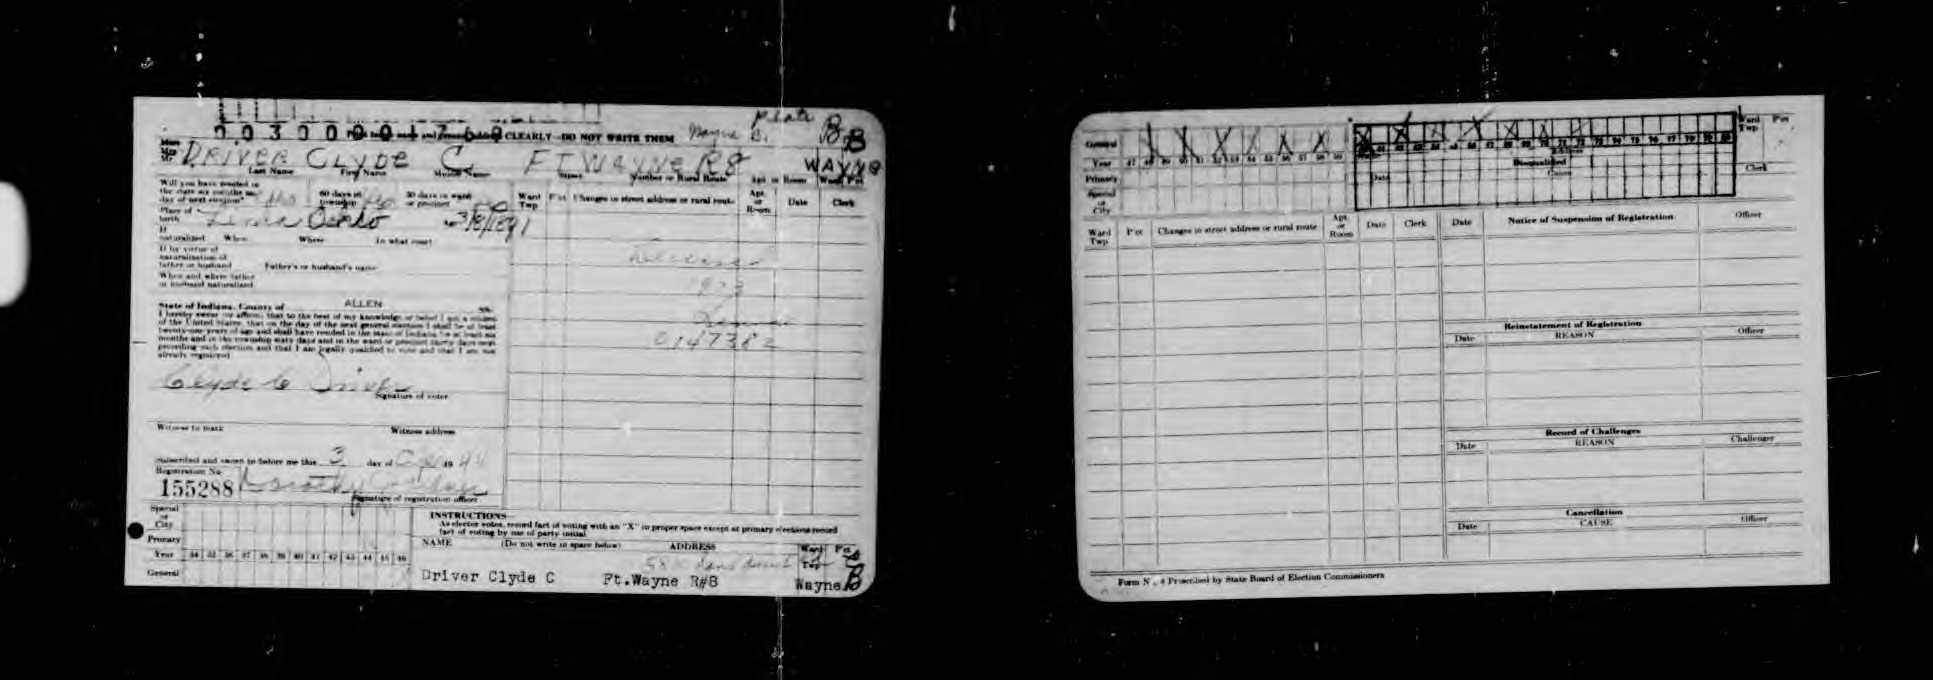 plate
Print CLEARLY—DO NOT WRITE THEM Wayne B. B B
DRIVER CLYDE C. FT WAYNE R8 WAYNE
Last Name First Name Middle Name Street Number or Rural Route Apt or Room Ward Pct
Will you have resided in the state six months on day of next election? 60 days in township 30 days in ward or precinct
Place of birth Lima Ohio 3/8/1891
If naturalized When Where In what court
If by virtue of naturalization of father or husband Father's or husband's name
When and where father or husband naturalized
State of Indiana, County of ALLEN SS:
I hereby swear (or affirm) that to the best of my knowledge or belief I am a citizen
of the United States, that on the day of the next general election I shall be at least
twenty-one years of age and shall have resided in the state of Indiana for at least six
months and in the township sixty days and in the ward or precinct thirty days next
preceding such election and that I am legally qualified to vote and that I am not
already registered
Clyde C Driver
Signature of voter
Witness to mark Witness address
Subscribed and sworn to before me this 3 day of 19
Registration No.
155288 Dorothy
Signature of registration officer
Ward Twp Pct Changes in street address or rural route Apt. or Room Date Clerk
0147382
Special or City
Primary
Year 34 35 36 37 38 39 40 41 42 43 44 45 46
General
INSTRUCTIONS—
As elector votes, record fact of voting with an "X" in proper space except at primary elections record
fact of voting by use of party initial.
NAME (Do not write in space below) ADDRESS Ward Twp Pct
Driver Clyde C Ft.Wayne R#8 Wayne B
General
Year 47 48 49 50 51 52 53 54 55 56 57 58 59
Primary
Special or City
Ward Twp Pct
Address
Disqualified
Date Cause Clerk
Ward Twp Pct Changes in street address or rural route Apt. or Room Date Clerk
Date Notice of Suspension of Registration Officer
Reinstatement of Registration
Date REASON Officer
Record of Challenges
Date REASON Challenger
Cancellation
Date CAUSE Officer
Form No. 4 Prescribed by State Board of Election Commissioners